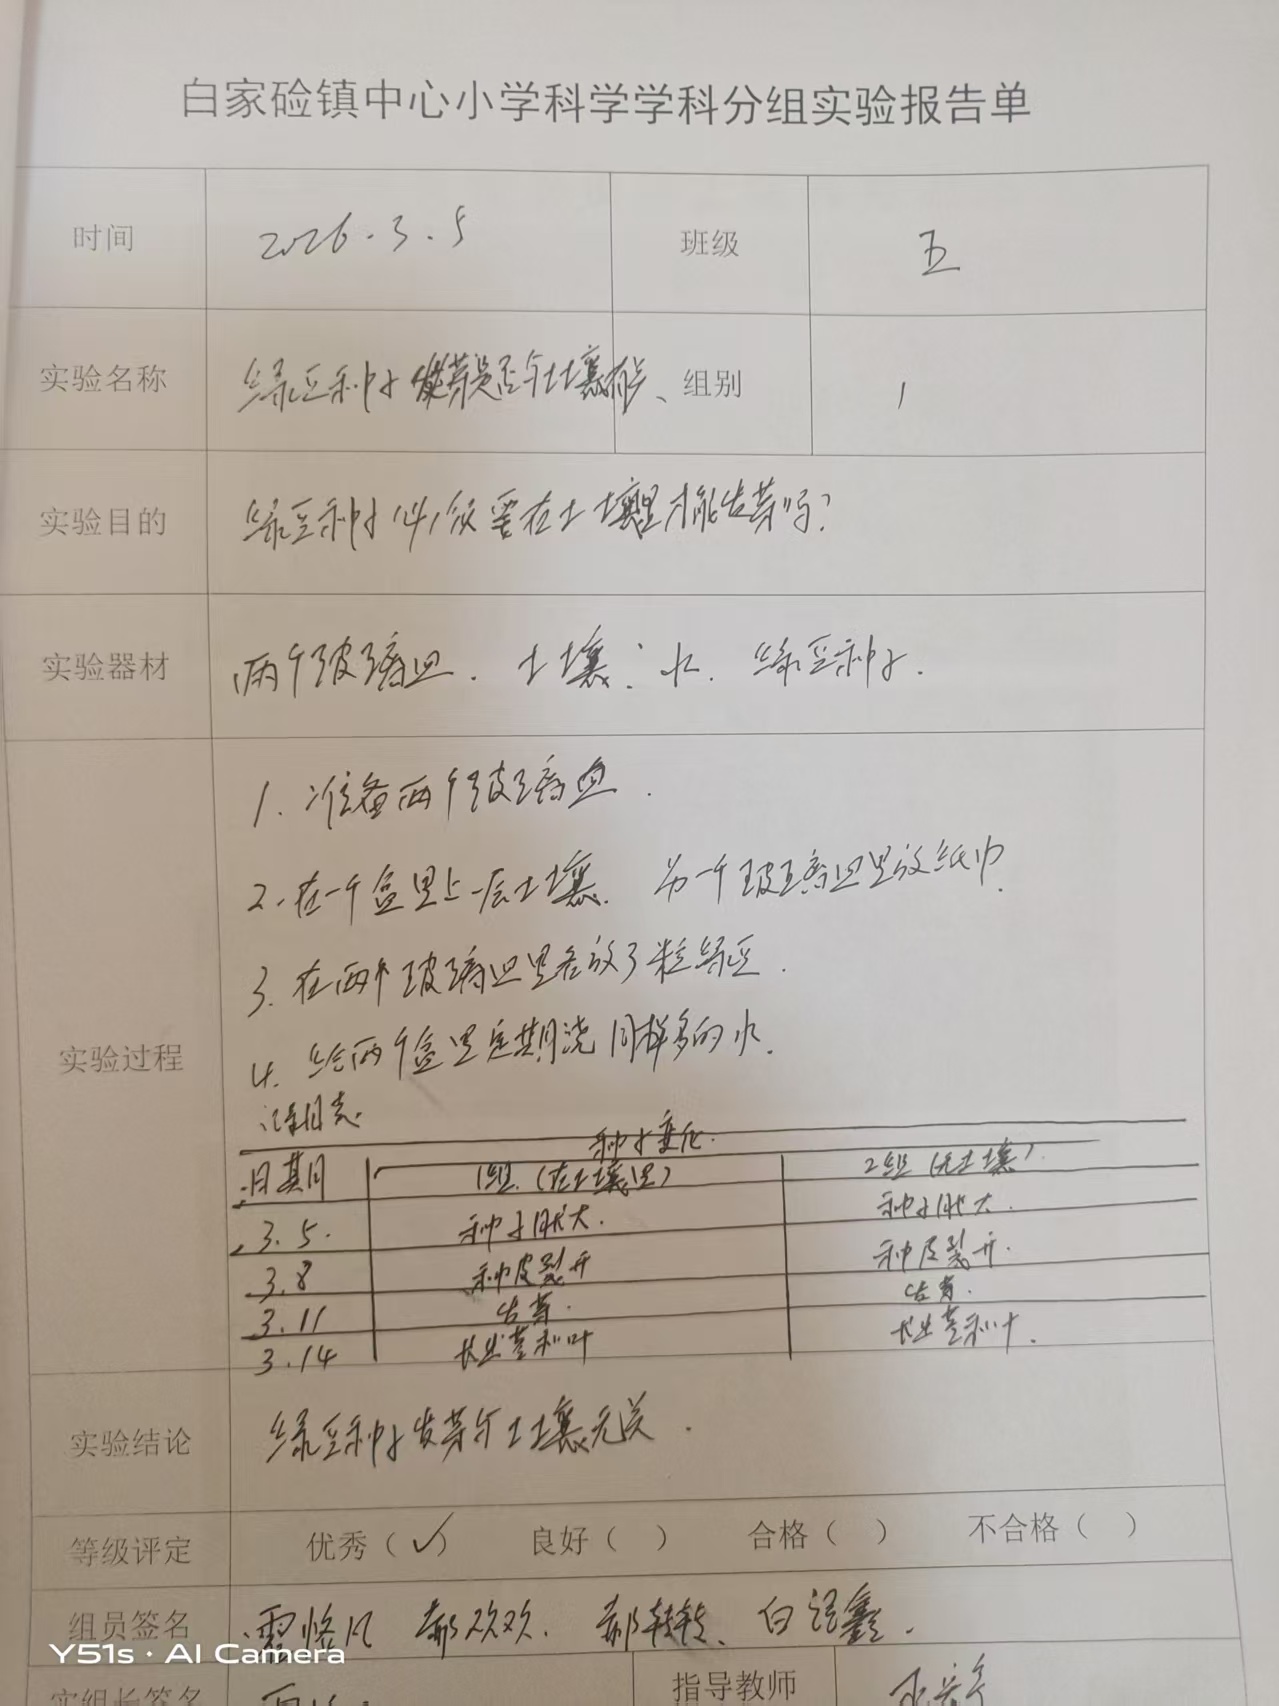 白家硷镇中心小学科学学科分组实验报告单
时间 2026.3.5 班级 五
实验名称 绿豆种子发芽是否与土壤有关、 组别 1
实验目的 绿豆种子必须要在土壤里才能发芽吗?
实验器材 两个玻璃皿. 土壤. 水. 绿豆种子.
实验过程
1. 准备两个玻璃皿.
2. 在一个盒里上一层土壤. 另一个玻璃皿里放纸巾.
3. 在两个玻璃皿里各放了粒绿豆.
4. 给两个盒里定期浇同样多的水.
记录日志.
种子变化.
日期 1组.(在土壤里) 2组(无土壤).
3.5. 种子胀大. 种子胀大.
3.8 种皮裂开 种皮裂开.
3.11 发芽. 发芽.
3.14 长出茎和叶 长出茎和叶.
实验结论 绿豆种子发芽与土壤无关.
等级评定 优秀(✓) 良好( ) 合格( ) 不合格( )
组员签名 郝欢欢. 郝转转、白
Y51s · AI Camera
指导教师
实组长签名